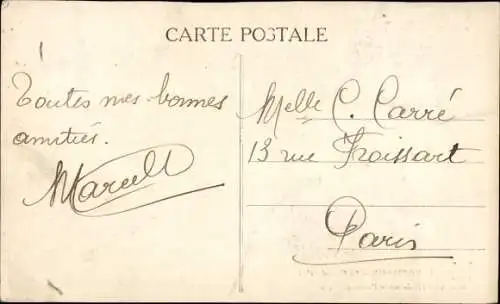 CARTE POSTALE
Toutes mes bonnes
amitiés.
Marcel
Melle C. Carré
13 rue Froissart
Paris